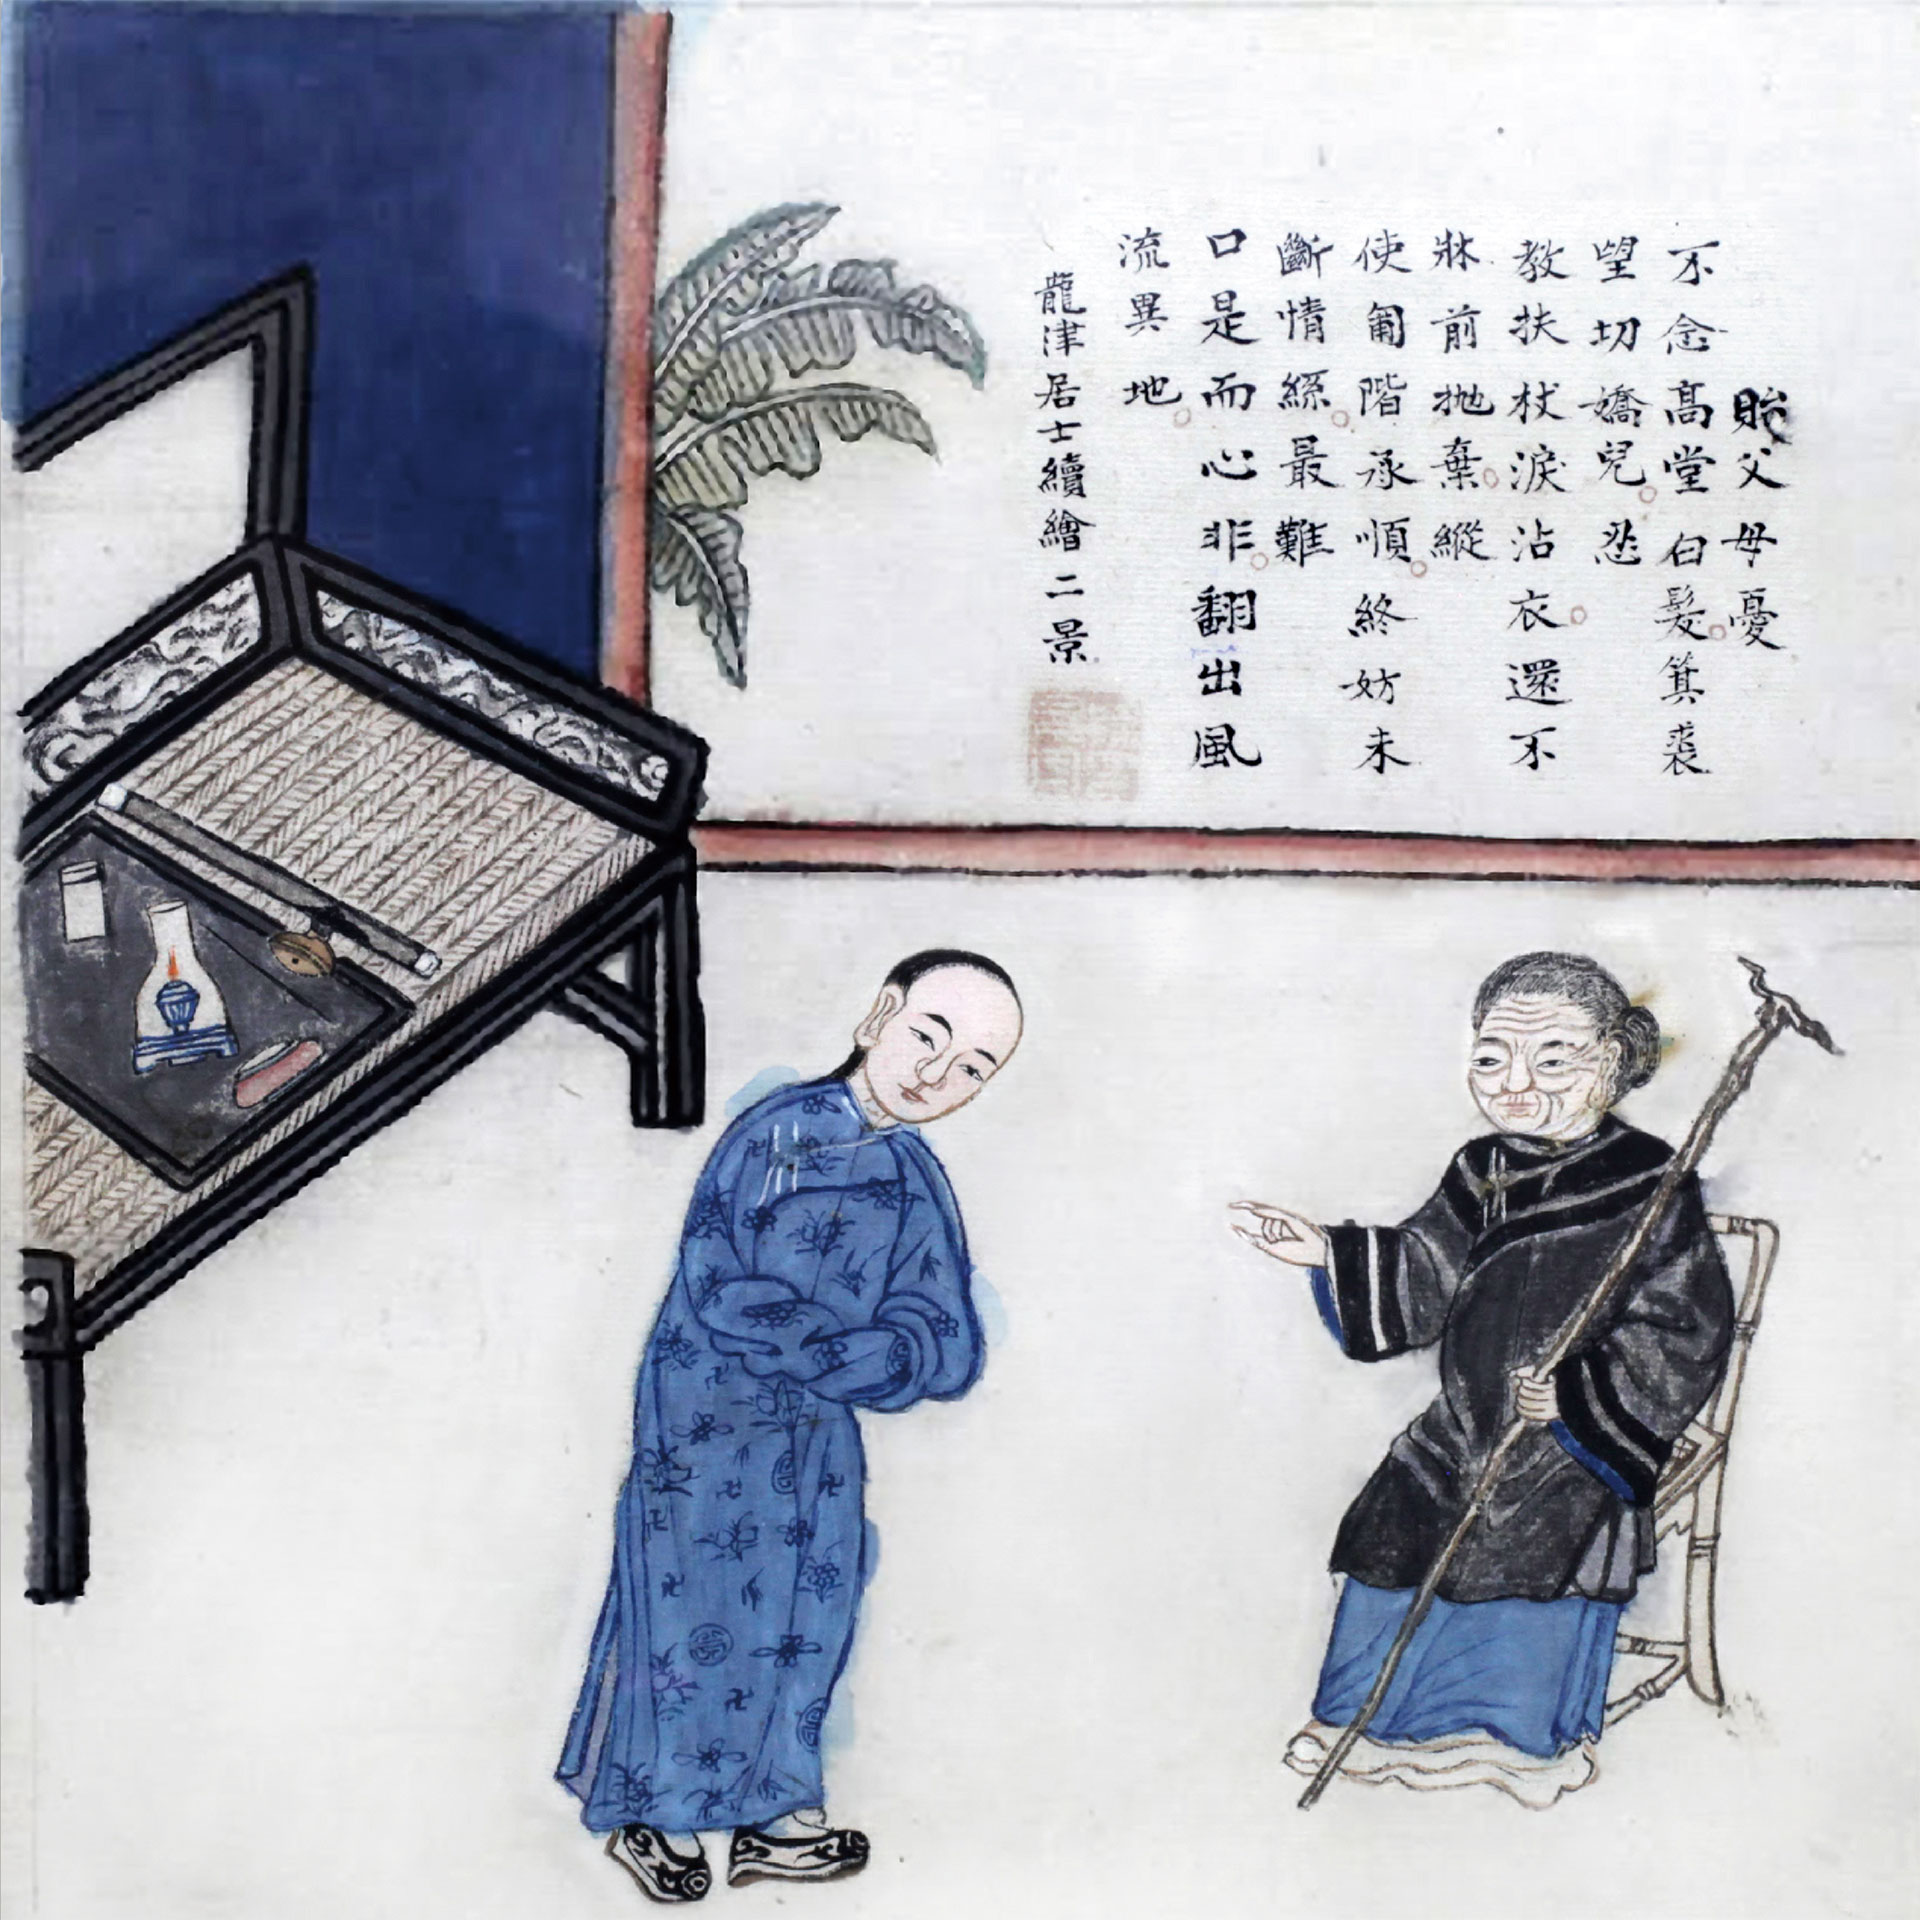 貽父母憂
不念高堂白髮箕裘
望切嬌兒忍
教扶杖淚沾衣還不
牀前拋棄縱
使匍階承順終妨未
斷情絲最難
口是而心非翻出風
流異地
龍津居士續繪二景